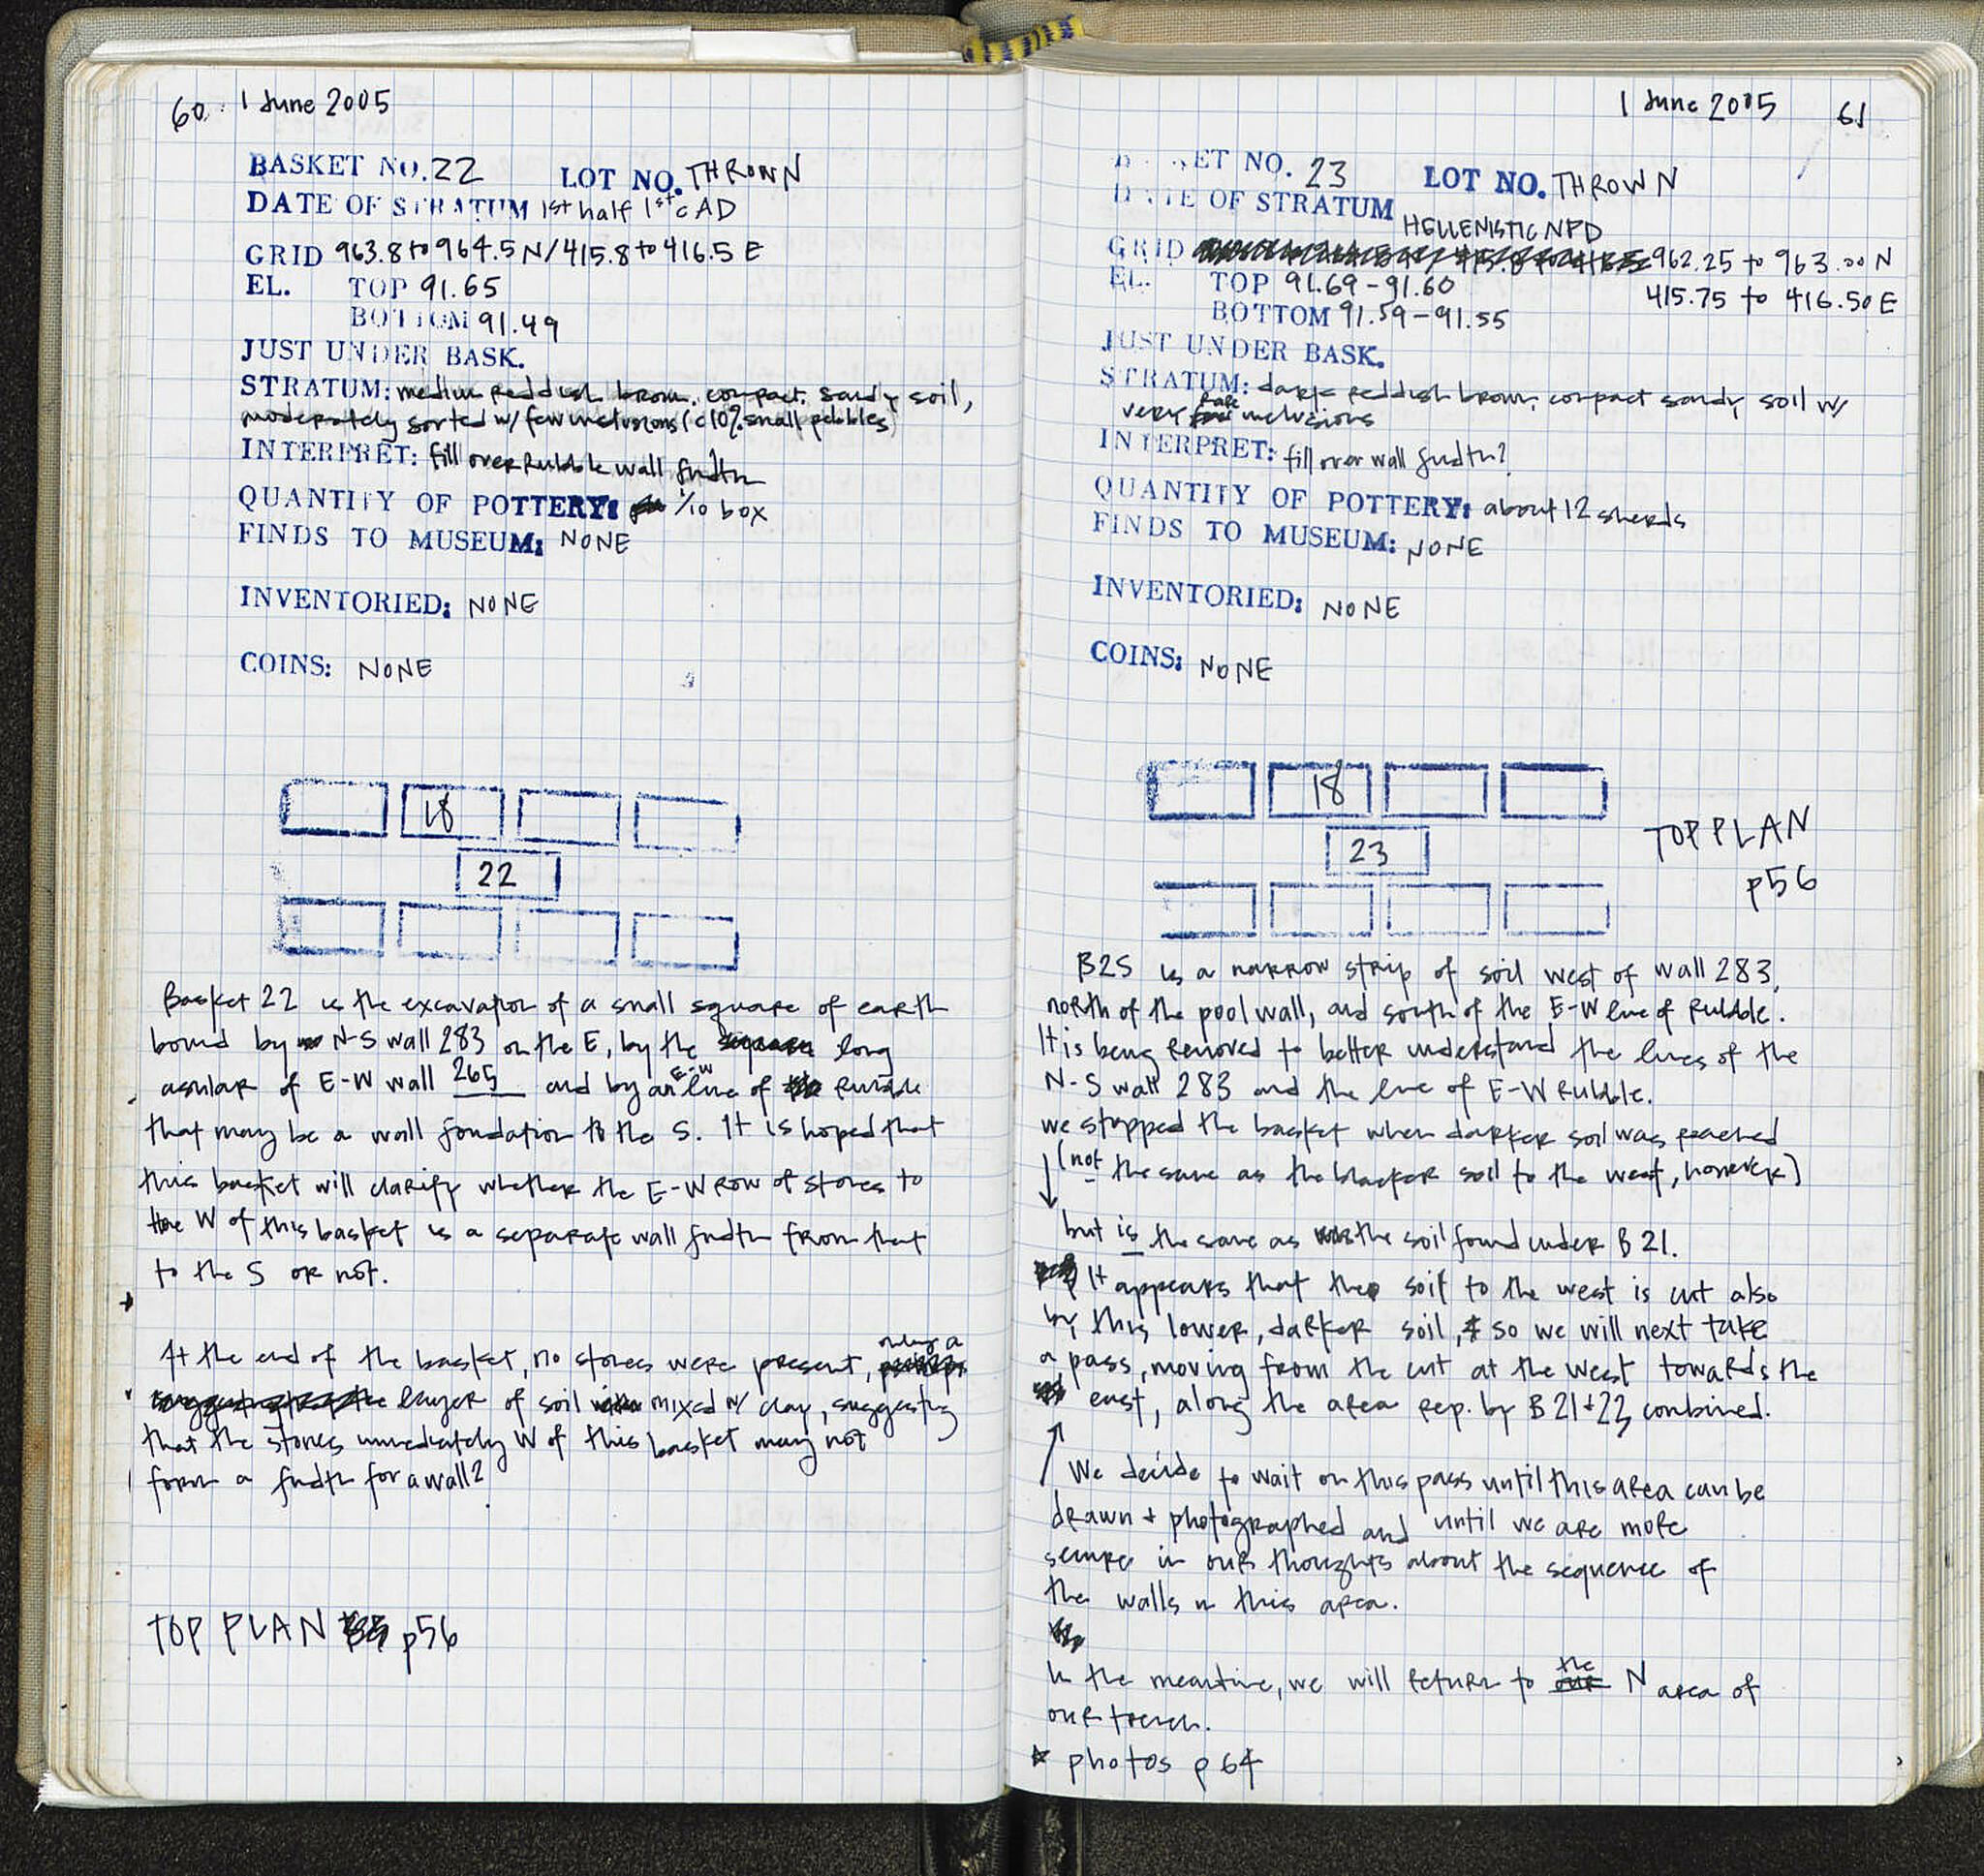 60. 1 June 2005
BASKET NO. 22 LOT NO. THROWN
DATE OF STRATUM 1st half 1st c AD
GRID 963.8 to 964.5 N/415.8 to 416.5 E
EL. TOP 91.65
BOTTOM 91.49
JUST UNDER BASK.
STRATUM: medium reddish brown, compact, sandy soil,
moderately sorted w/ few inclusions (<10% small pebbles)
INTERPRET: fill over Rubble wall fndtn
QUANTITY OF POTTERY: 1/10 box
FINDS TO MUSEUM: NONE
INVENTORIED: NONE
COINS: NONE
18
22
Basket 22 is the excavation of a small square of earth
bound by N-S wall 283 on the E, by the long
ashlar of E-W wall 265 and by an E-W line of Rubble
that may be a wall foundation to the S. It is hoped that
this basket will clarify whether the E-W Row of stones to
the W of this basket is a separate wall fndtn from that
to the S or not.
At the end of the basket, no stones were present, only a
layer of soil mixed w/ clay, suggesting
that the stones immediately W of this basket may not
form a fndtn for a wall?
TOP PLAN p56
1 June 2005 61
BASKET NO. 23 LOT NO. THROWN
DATE OF STRATUM HELLENISTIC NPD
GRID 962.25 to 963.00 N
415.75 to 416.50 E
EL. TOP 91.69-91.60
BOTTOM 91.59-91.55
JUST UNDER BASK.
STRATUM: dark reddish brown, compact sandy soil w/
very rare inclusions
INTERPRET: fill over wall fndtn?
QUANTITY OF POTTERY: about 12 sherds
FINDS TO MUSEUM: NONE
INVENTORIED: NONE
COINS: NONE
18
23
TOP PLAN
p56
B23 is a narrow strip of soil west of wall 283,
north of the pool wall, and south of the E-W line of Rubble.
It is being Removed to better understand the lines of the
N-S wall 283 and the line of E-W Rubble.
we stopped the basket when darker soil was reached
(not the same as the blacker soil to the west, however)
but is the same as the soil found under B 21.
It appears that the soil to the west is cut also
by this lower, darker soil, & so we will next take
a pass, moving from the cut at the west towards the
east, along the area rep. by B 21+23 combined.
We decide to wait on this pass until this area can be
drawn + photographed and until we are more
secure in our thoughts about the sequence of
the walls in this area.
In the meantime, we will return to the N area of
our trench.
* photos p 64